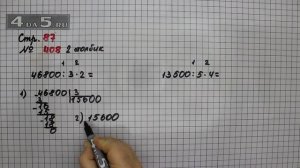 4DA5.RU
Стр. 87
№ 408 2 столбик
1 2
46800 : 3 · 2 =
1 2
13500 : 5 · 4 =
1) 46800 | 3
3 15600
-16
15
-18
18
0
2) 15600